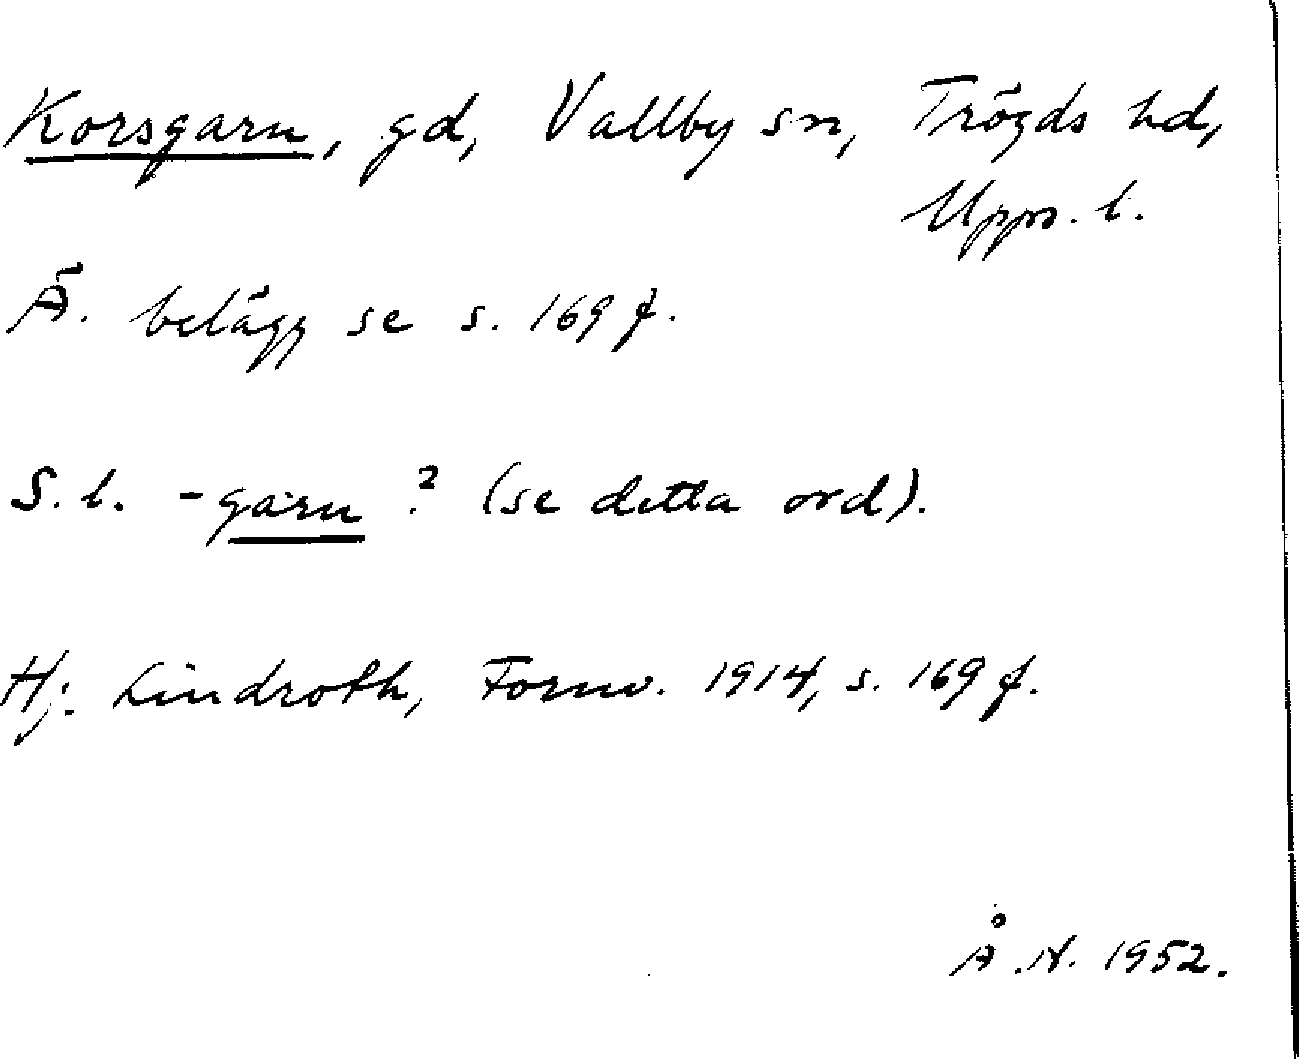 Korsgarn, gd, Vallby sn, Trögds hd,
Upps. l.
Ä. belägg se s. 169 f.
S. l. -garn ? (se detta ord).
Hj. Lindroth, Fornv. 1914, s. 169 f.
Å. N. 1952.